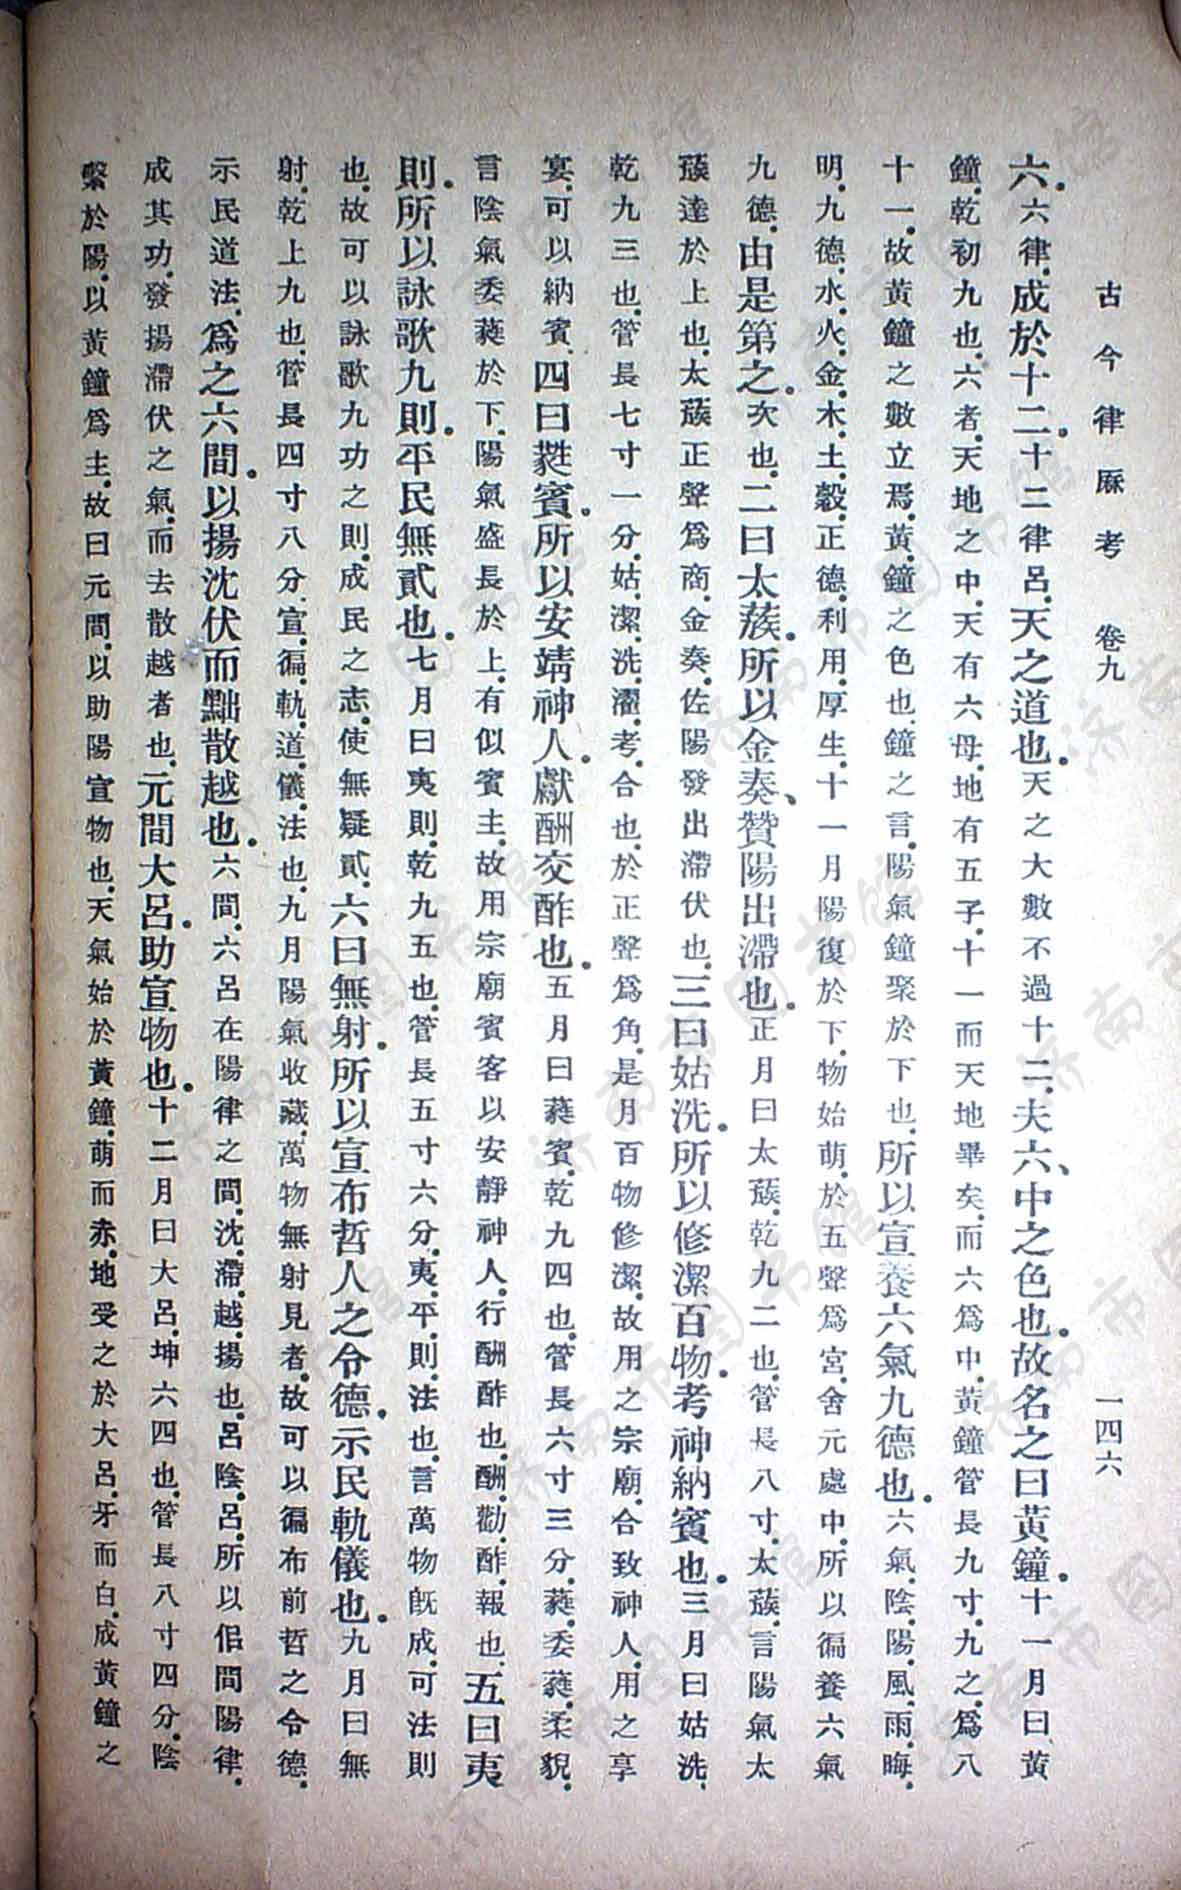 古今律厤考　卷九　一四六
六。六律。成於十二。十二律呂。天之道也。天之大數不過十二。夫六、中之色也。故名之曰黃鐘。十一月曰黃
鐘。乾初九也。六者。天地之中。天有六母。地有五子。十一而天地畢矣。而六爲中。黃鐘管長九寸。九之。爲八
十一。故黃鐘之數立焉。黃。鐘之色也。鐘之言。陽氣鐘聚於下也。所以宣養六氣九德也。六氣。陰。陽。風。雨。晦。
明。九德。水。火。金。木。土。穀。正德。利用。厚生。十一月陽復於下。物始萌。於五聲爲宮。舍元處中。所以徧養六氣
九德。由是第之。次也。二曰太蔟。所以金奏、贊陽出滯也。正月曰太蔟。乾九二也。管長八寸。太蔟。言陽氣太
蔟達於上也。太蔟正聲爲商。金奏。佐陽發出滯伏也。三曰姑洗。所以修潔百物。考神納賓也。三月曰姑洗。
乾九三也。管長七寸一分。姑。潔。洗。濯。考。合也。於正聲爲角。是月百物修潔。故用之宗廟。合致神人。用之享
宴。可以納賓。四曰蕤賓。所以安靖神人。獻酬交酢也。五月曰蕤賓。乾九四也。管長六寸三分。蕤。委蕤。柔貌。
言陰氣委蕤於下。陽氣盛長於上。有似賓主。故用宗廟賓客以安靜神人。行酬酢也。酬。勸。酢。報也。五曰夷
則。所以詠歌九則。平民無貳也。七月曰夷則。乾九五也。管長五寸六分。夷。平。則。法也。言萬物旣成。可法則
也。故可以詠歌九功之則。成民之志。使無疑貳。六曰無射。所以宣布哲人之令德。示民軌儀也。九月曰無
射。乾上九也。管長四寸八分。宣。徧。軌。道。儀。法也。九月陽氣收藏。萬物無射見者。故可以徧布前哲之令德。
示民道法。爲之六間。以揚沈伏而黜散越也。六間。六呂在陽律之間。沈。滯。越。揚也。呂陰。呂。所以侶間陽律。
成其功。發揚滯伏之氣。而去散越者也。元間大呂。助宣物也。十二月曰大呂。坤六四也。管長八寸四分。陰
繫於陽。以黃鐘爲主。故曰元間。以助陽宣物也。天氣始於黃鐘。萌而赤。地受之於大呂。牙而白。成黃鐘之